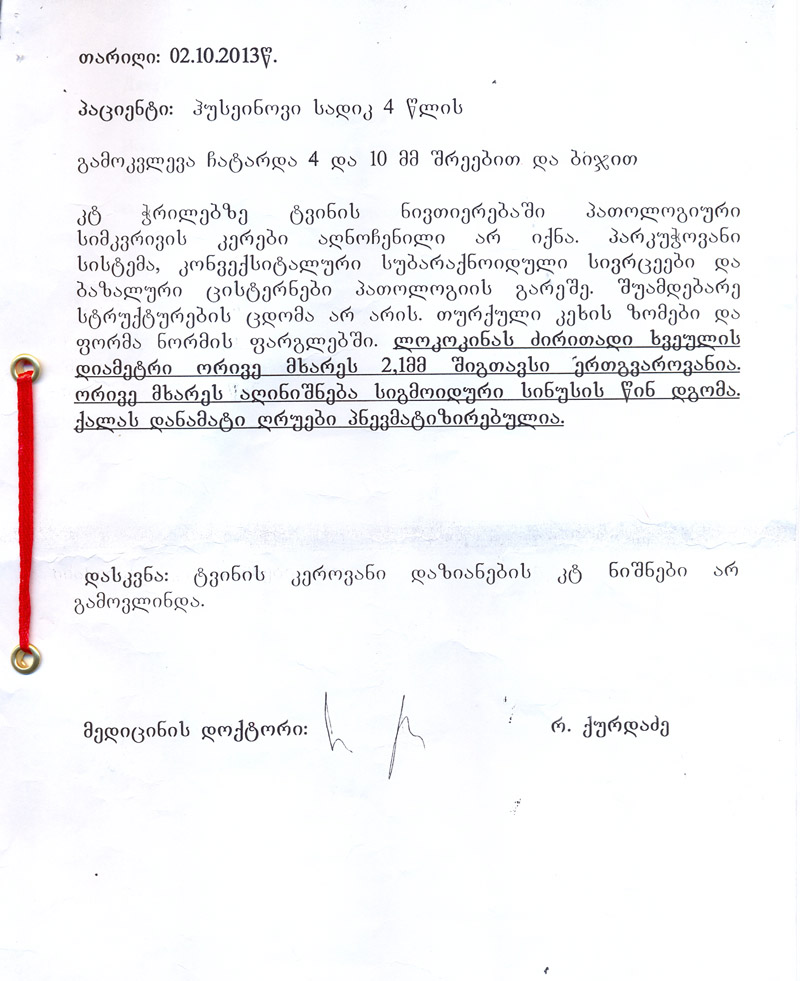 თარიღი: 02.10.2013წ.
პაციენტი: ჰუსეინოვი სადიკ 4 წლის
გამოკვლევა ჩატარდა 4 და 10 მმ შრეებით და ბიჯით
კტ ჭრილებზე ტვინის ნივთიერებაში პათოლოგიური
სიმკვრივის კერები აღნოჩენილი არ იქნა. პარკუჭოვანი
სისტემა, კონვექსიტალური სუბარაქნოიდული სივრცეები და
ბაზალური ცისტერნები პათოლოგიის გარეშე. შუამდებარე
სტრუქტურების ცდომა არ არის. თურქული კეხის ზომები და
ფორმა ნორმის ფარგლებში. ლოკოკინას ძირითადი ხვეულის
დიამეტრი ორივე მხარეს 2,1მმ შიგთავსი ერთგვაროვანია.
ორივე მხარეს აღინიშნება სიგმოიდური სინუსის წინ დგომა.
ქალას დანამატი ღრუები პნევმატიზირებულია.
დასკვნა: ტვინის კეროვანი დაზიანების კტ ნიშნები არ
გამოვლინდა.
მედიცინის დოქტორი: რ. ქურდაძე